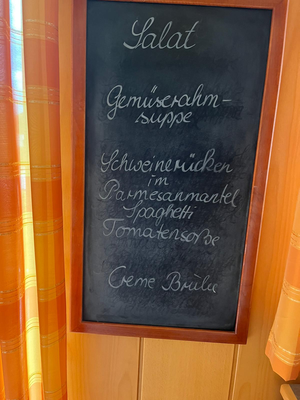 Salat
Gemüserahm-
suppe
Schweinerücken
im
Parmesanmantel
Spaghetti
Tomatensoße
Creme Brulee